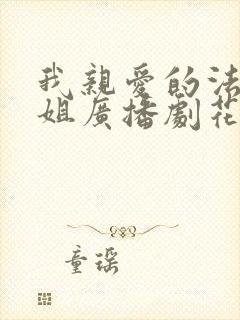 我親愛的法
姐廣播劇花
童瑤